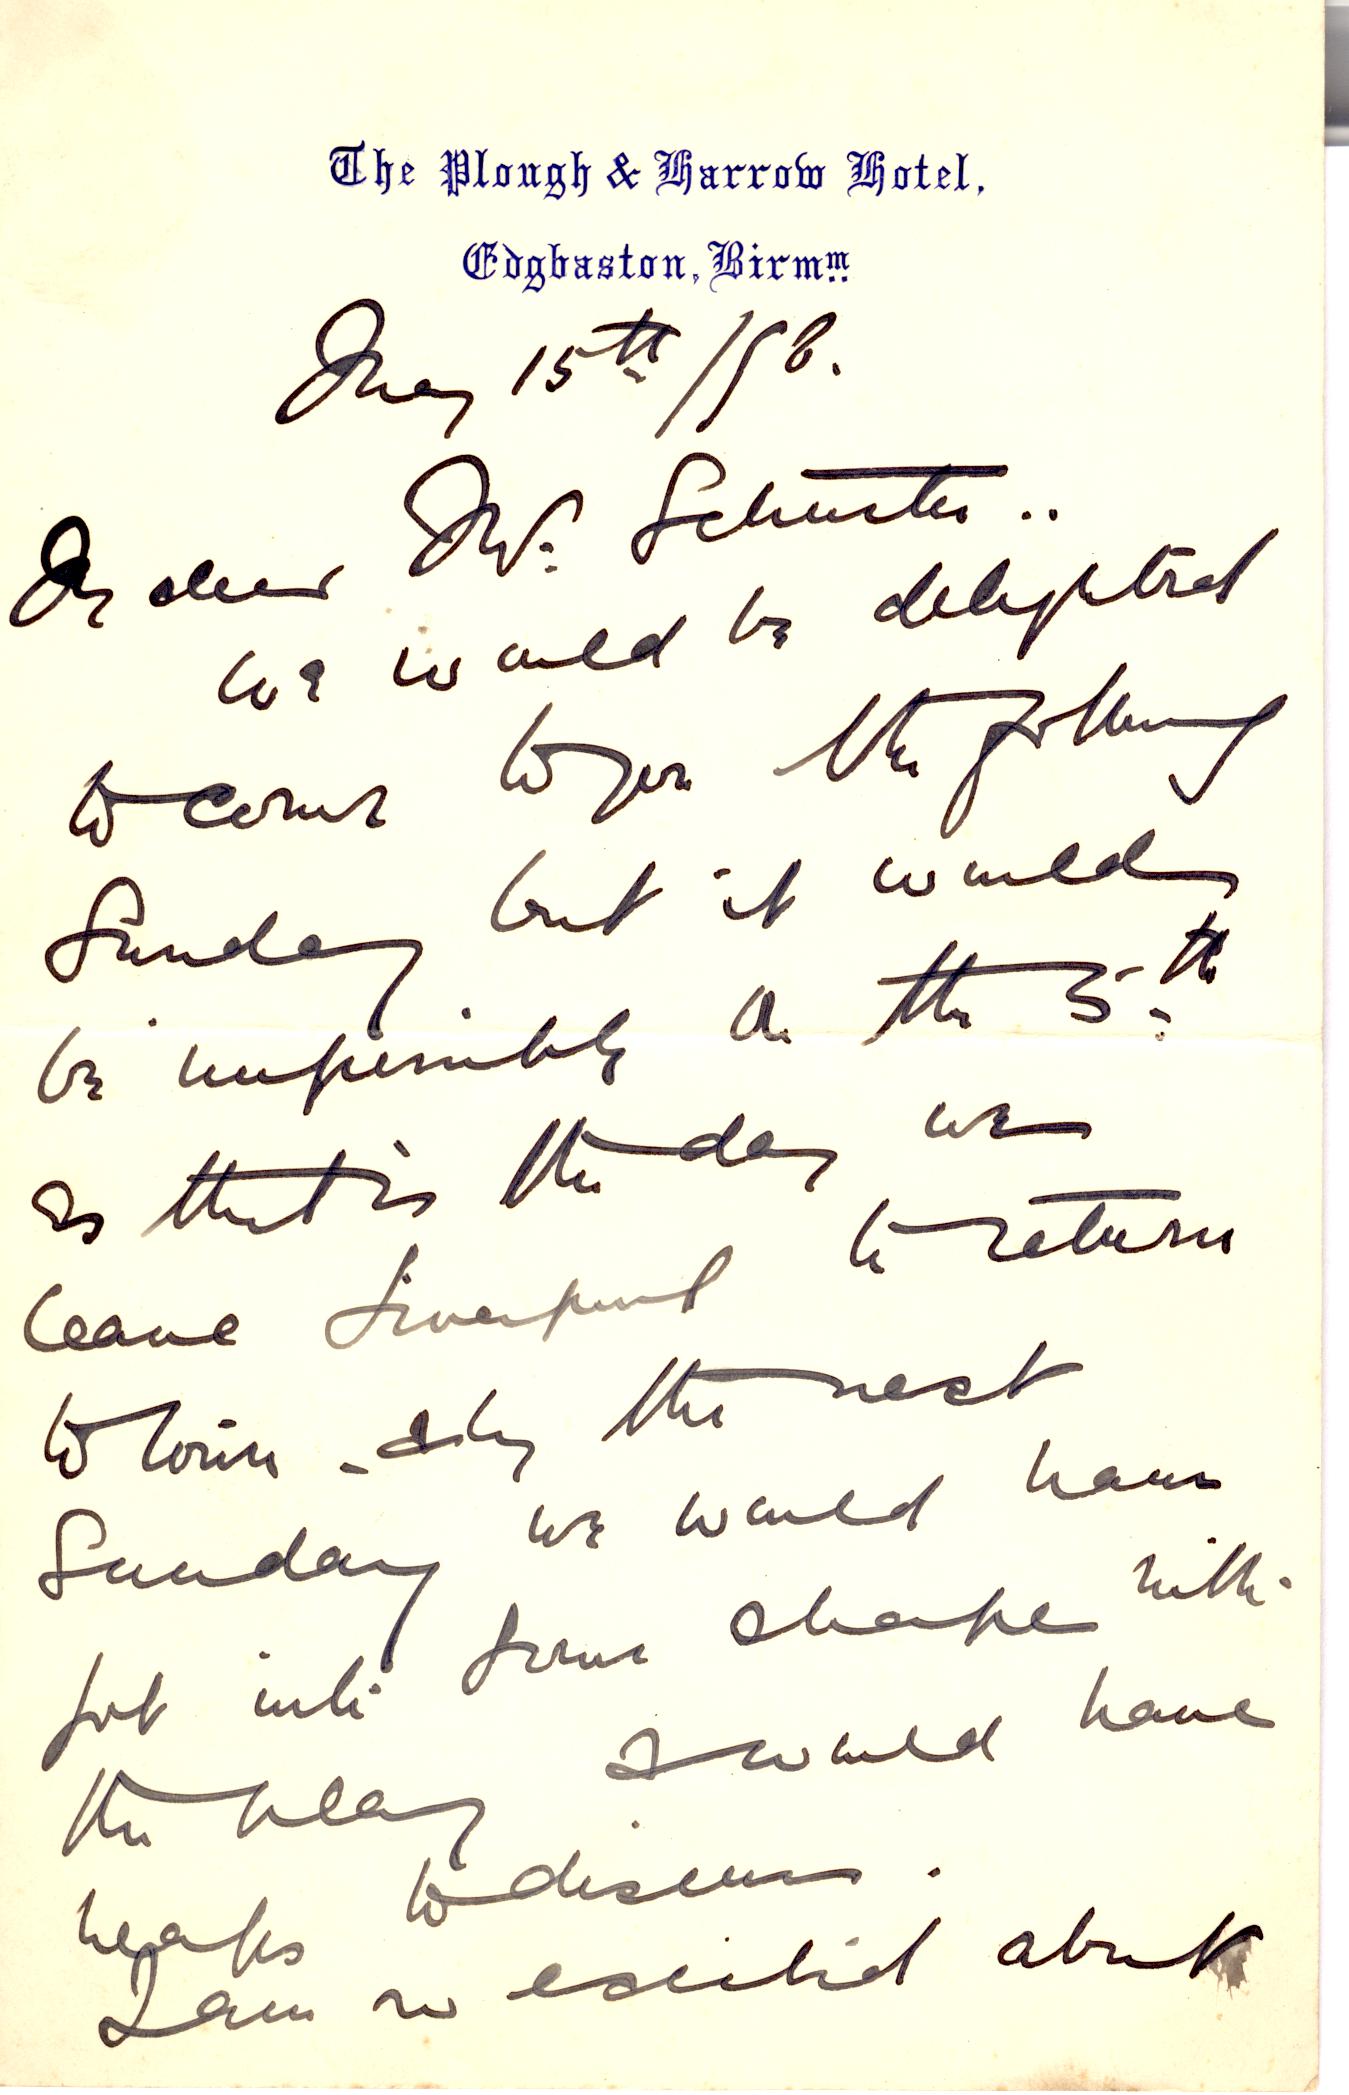 The Plough & Harrow Hotel,
Edgbaston, Birmm.
May 15th /98.
My dear Mr. Schuster..
We would be delighted
to come to you the following
Sunday but it would
be impossible on the 5th
as that is the day we
leave Liverpool to return
to town - & by the next
Sunday we would have
got into some shape with
the play & would have
heaps to discuss.
I am so excited about